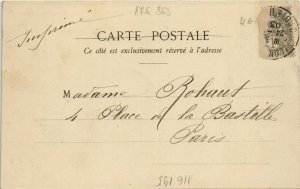 176 863
Imprimé
CARTE POSTALE
Ce côté est exclusivement réservé à l'adresse
Madame Rohaut
4 Place de la Bastille
Paris